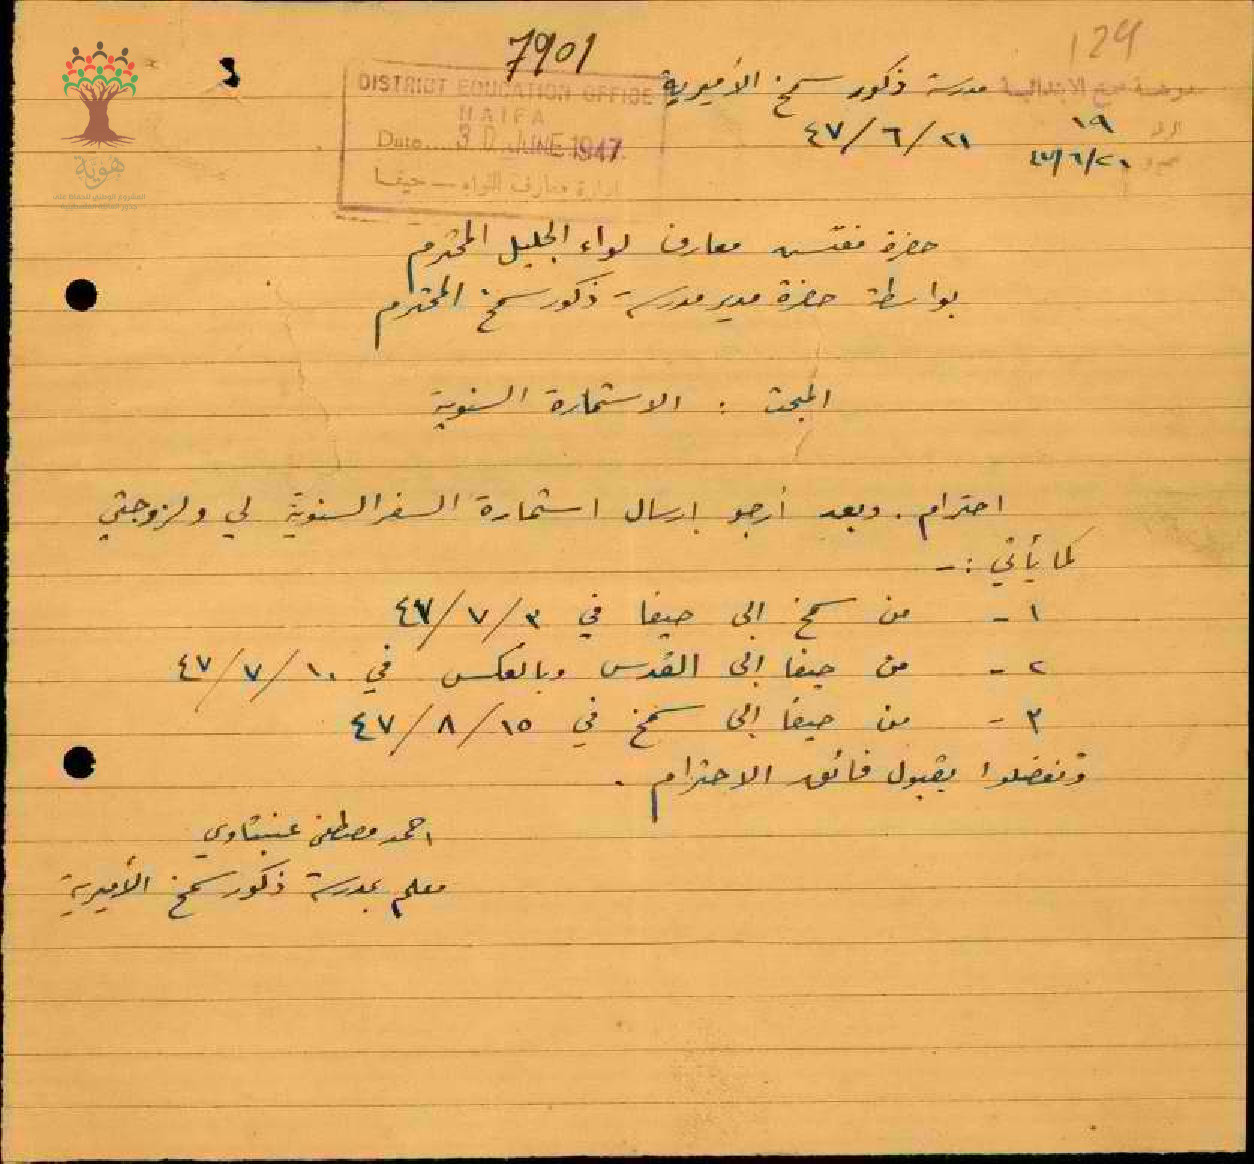 7901
124
DISTRICT EDUCATION OFFICE
HAIFA
Date.... 30 JUNE 1947
ادارة معارف اللواء — حيفا
مدرسة ذكور سمخ الأميرية
٢١/٦/٤٧
١٩
هوية
حضرة مفتش معارف لواء الجليل المحترم
بواسطة حضرة مدير مدرسة ذكور سمخ المحترم
المبحث : الاستمارة السنوية
احترام . وبعد أرجو إرسال استمارة السفر السنوية لي ولزوجتي
كما يأتي :-
١ - من سمخ إلى حيفا في ٣/٧/٤٧
٢ - من حيفا إلى القدس وبالعكس في ١٠/٧/٤٧
٣ - من حيفا إلى سمخ في ١٥/٨/٤٧
وتفضلوا بقبول فائق الاحترام .
احمد مصطفى عنبتاوي
معلم بمدرسة ذكور سمخ الأميرية